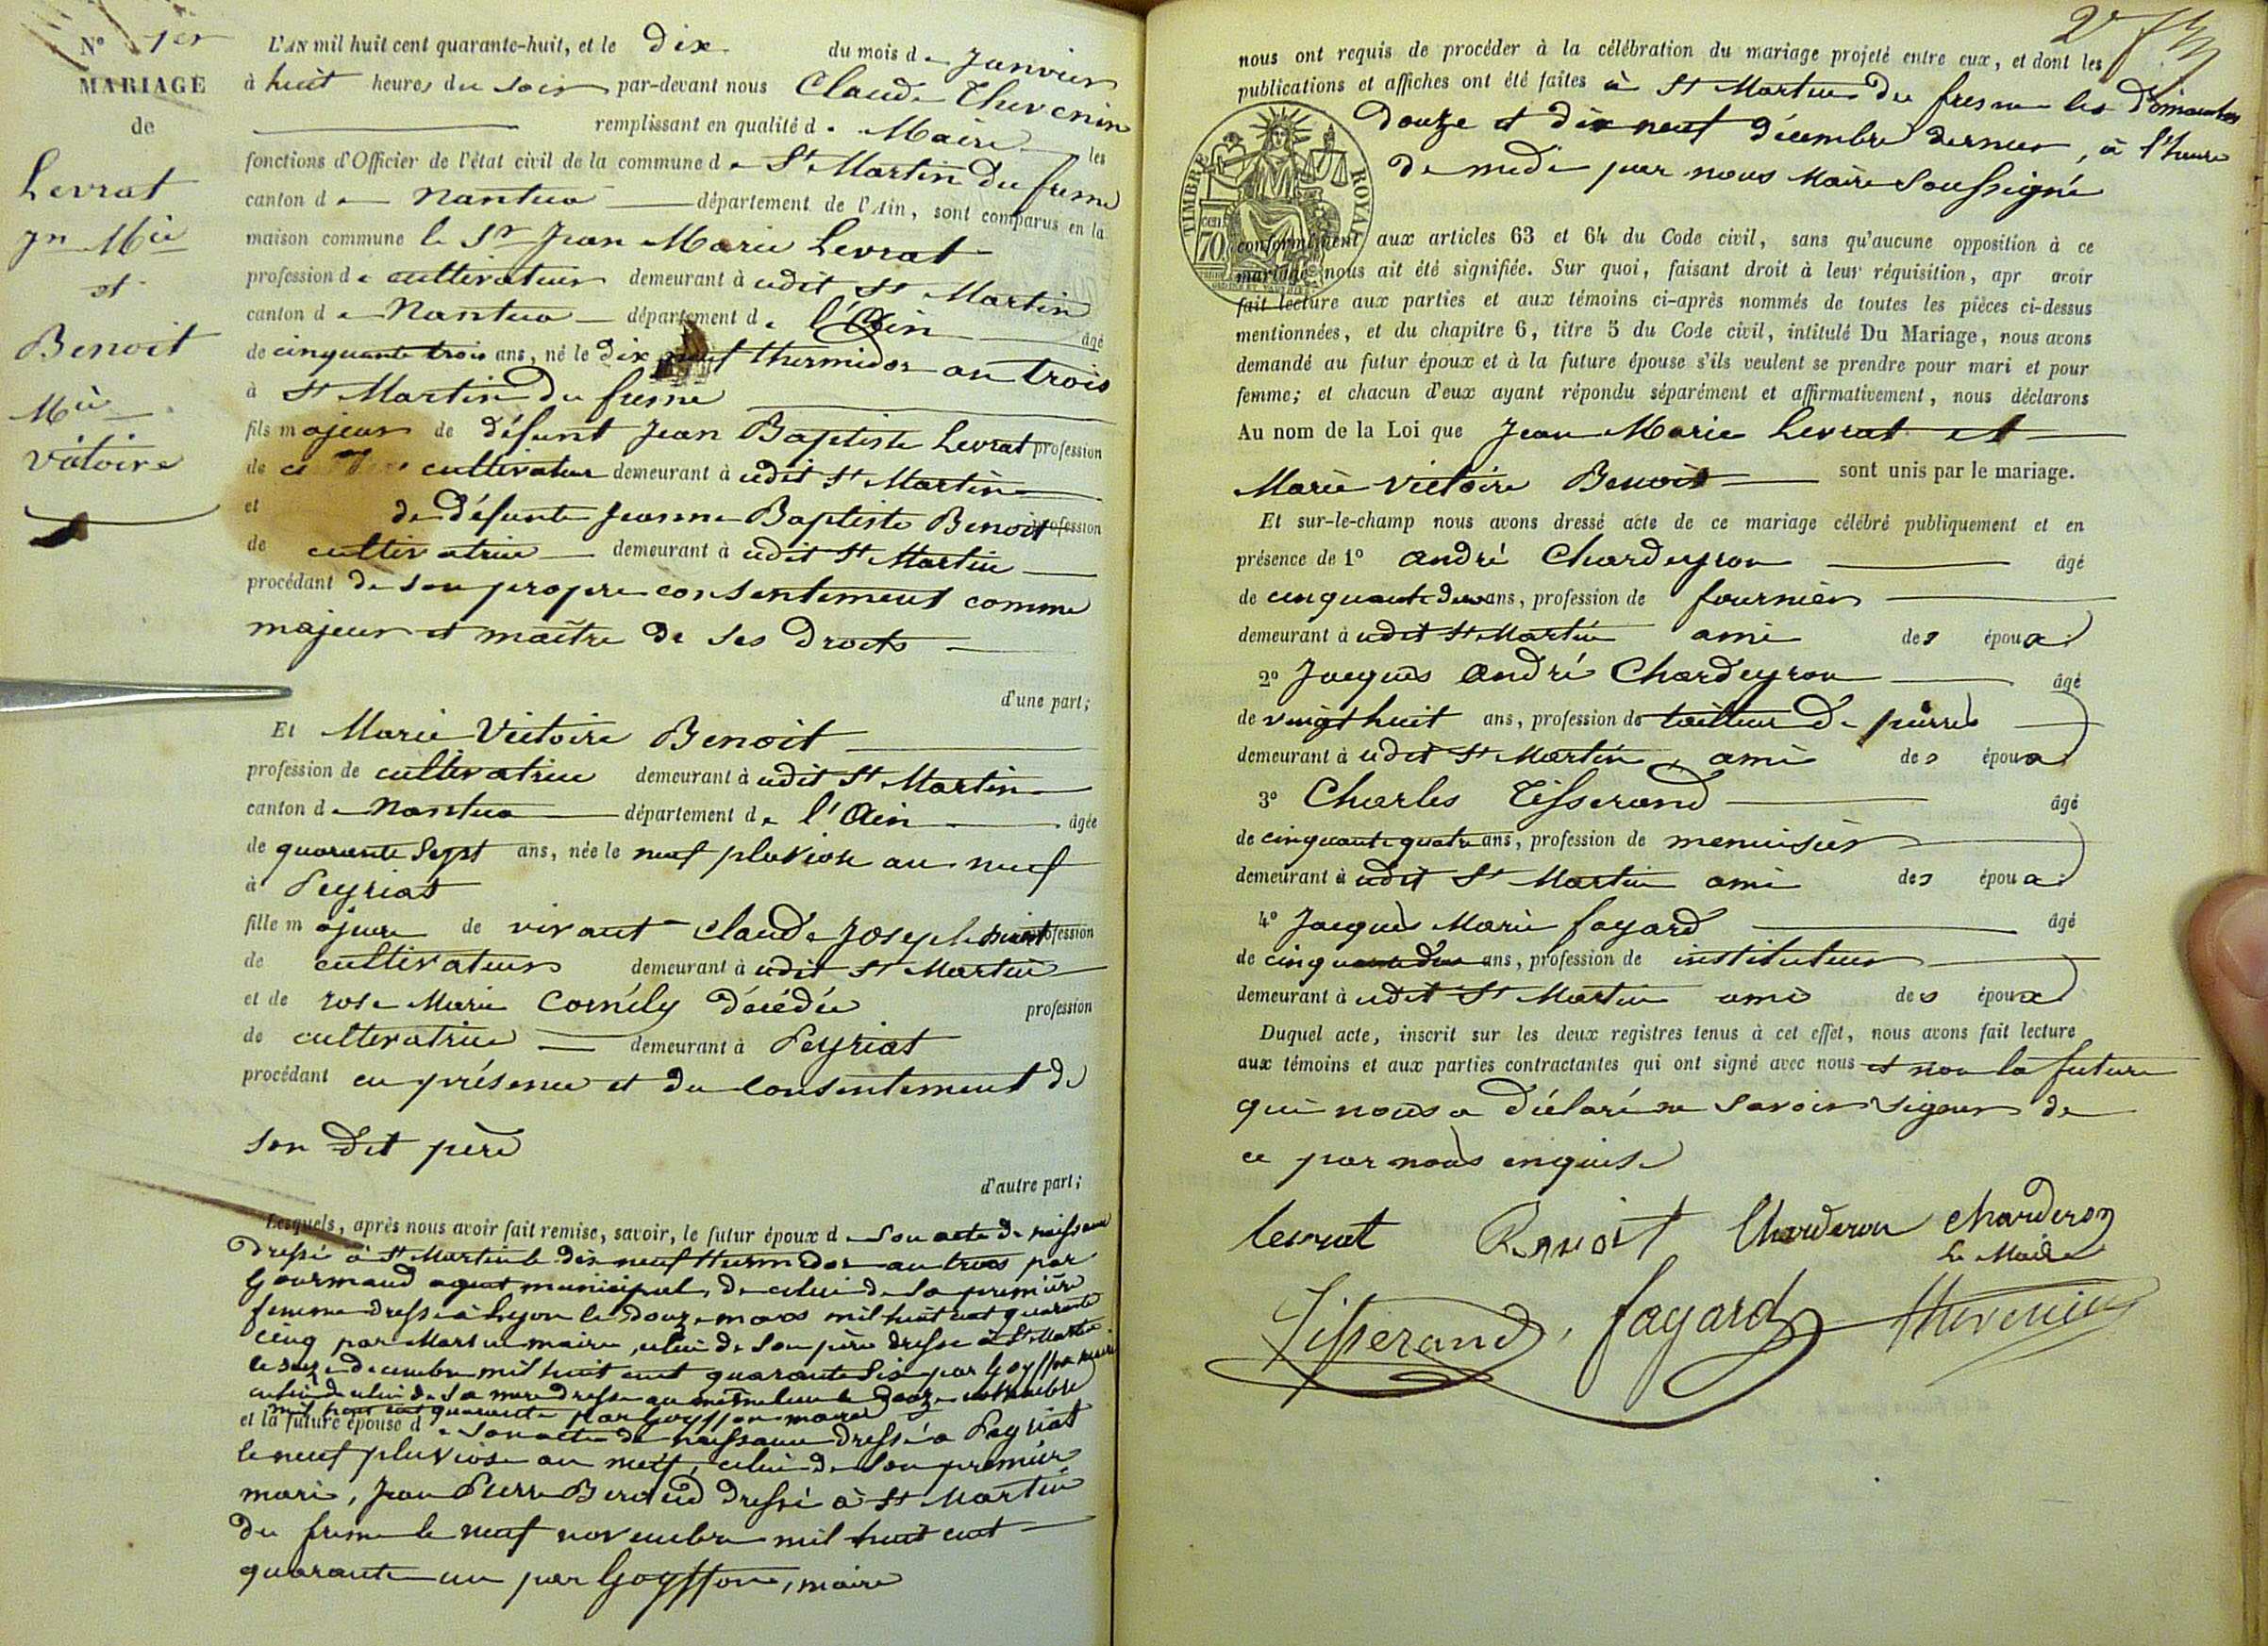 N° 1er
MARIAGE
de
Levrat
Jn Mie
et
Benoit
Mie
Victoire
L'AN mil huit cent quarante-huit, et le dix du mois de Janvier
à huit heures du soir par-devant nous Claude Thevenin
remplissant en qualité de Maire les
fonctions d'Officier de l'état civil de la commune de St Martin du fresne
canton de Nantua département de l'Ain, sont comparus en la
maison commune le Sr Jean Marie Levrat
profession de cultivateur demeurant à udit St Martin
canton de Nantua département de l'Ain âgé
de cinquante trois ans, né le dix neuf thermidor an trois
à St Martin du fresne
fils majeur de défunt Jean Baptiste Levrat profession
de cultivateur demeurant à udit St Martin
et de défunte Jeanne Baptiste Benoit profession
de cultivatrice demeurant à udit St Martin
procédant de son propre consentement comme
majeur et maître de ses droits
d'une part;
Et Marie Victoire Benoit
profession de cultivatrice demeurant à udit St Martin
canton de Nantua département de l'Ain âgée
de quarante sept ans, née le neuf pluviose an neuf
à Peyriat
fille majeure de vivant Claude Joseph Benoit profession
de cultivateur demeurant à udit St Martin
et de rose Marie Cornély décédée profession
de cultivatrice demeurant à Peyriat
procédant en présence et du consentement de
son dit père
d'autre part;
Lesquels, après nous avoir fait remise, savoir, le futur époux de son acte de naissance
dressé à St Martin le dix neuf thermidor an trois par
Gourmand agent municipal, de celui de sa première
femme dressé à Lyon le douze mars mil huit cent quarante
cinq par Martin maire, celui de son père dressé à St Martin
le decembre mil huit cent quarante six par Goyffon maire
enfin de celui de sa mere dressé au même lieu le douze
mil huit cent quarante par Goyffon maire
et la future épouse de son acte de naissance dressé à Peyriat
le neuf pluviose an neuf, celui de son premier
mari, Jean Pierre Beroud dressé à St Martin
du fresne le neuf novembre mil huit cent
quarante un par Goyffon, maire
2e
nous ont requis de procéder à la célébration du mariage projeté entre eux, et dont les
publications et affiches ont été faites à St Martin du fresne les Dimanches
douze et dix neuf décembre dernier, à l'heure
de midi par nous Maire soussigné
TIMBRE ROYAL
70
conformément aux articles 63 et 64 du Code civil, sans qu'aucune opposition à ce
mariage nous ait été signifiée. Sur quoi, faisant droit à leur réquisition, apr avoir
fait lecture aux parties et aux témoins ci-après nommés de toutes les pièces ci-dessus
mentionnées, et du chapitre 6, titre 5 du Code civil, intitulé Du Mariage, nous avons
demandé au futur époux et à la future épouse s'ils veulent se prendre pour mari et pour
femme; et chacun d'eux ayant répondu séparément et affirmativement, nous déclarons
Au nom de la Loi que Jean Marie Levrat et
Marie Victoire Benoit sont unis par le mariage.
Et sur-le-champ nous avons dressé acte de ce mariage célébré publiquement et en
présence de 1° André Chardeyron âgé
de cinquante deux ans, profession de fournier
demeurant à udit St Martin ami des époux
2° Jacques André Chardeyron âgé
de vingt huit ans, profession de tailleur de pierres
demeurant à udit St Martin, ami des époux
3° Charles Tisserand âgé
de cinquante quatre ans, profession de menuisier
demeurant à udit St Martin ami des époux
4° Jacques Marie fayard âgé
de cinquante deux ans, profession de instituteur
demeurant à udit St Martin ami des époux
Duquel acte, inscrit sur les deux registres tenus à cet effet, nous avons fait lecture
aux témoins et aux parties contractantes qui ont signé avec nous et non la future
qui nous a déclaré ne savoir signer de
ce par nous enquise
Levrat Benoit Charderon Charderon
Le Maire
Tisserand, fayard Thevenin